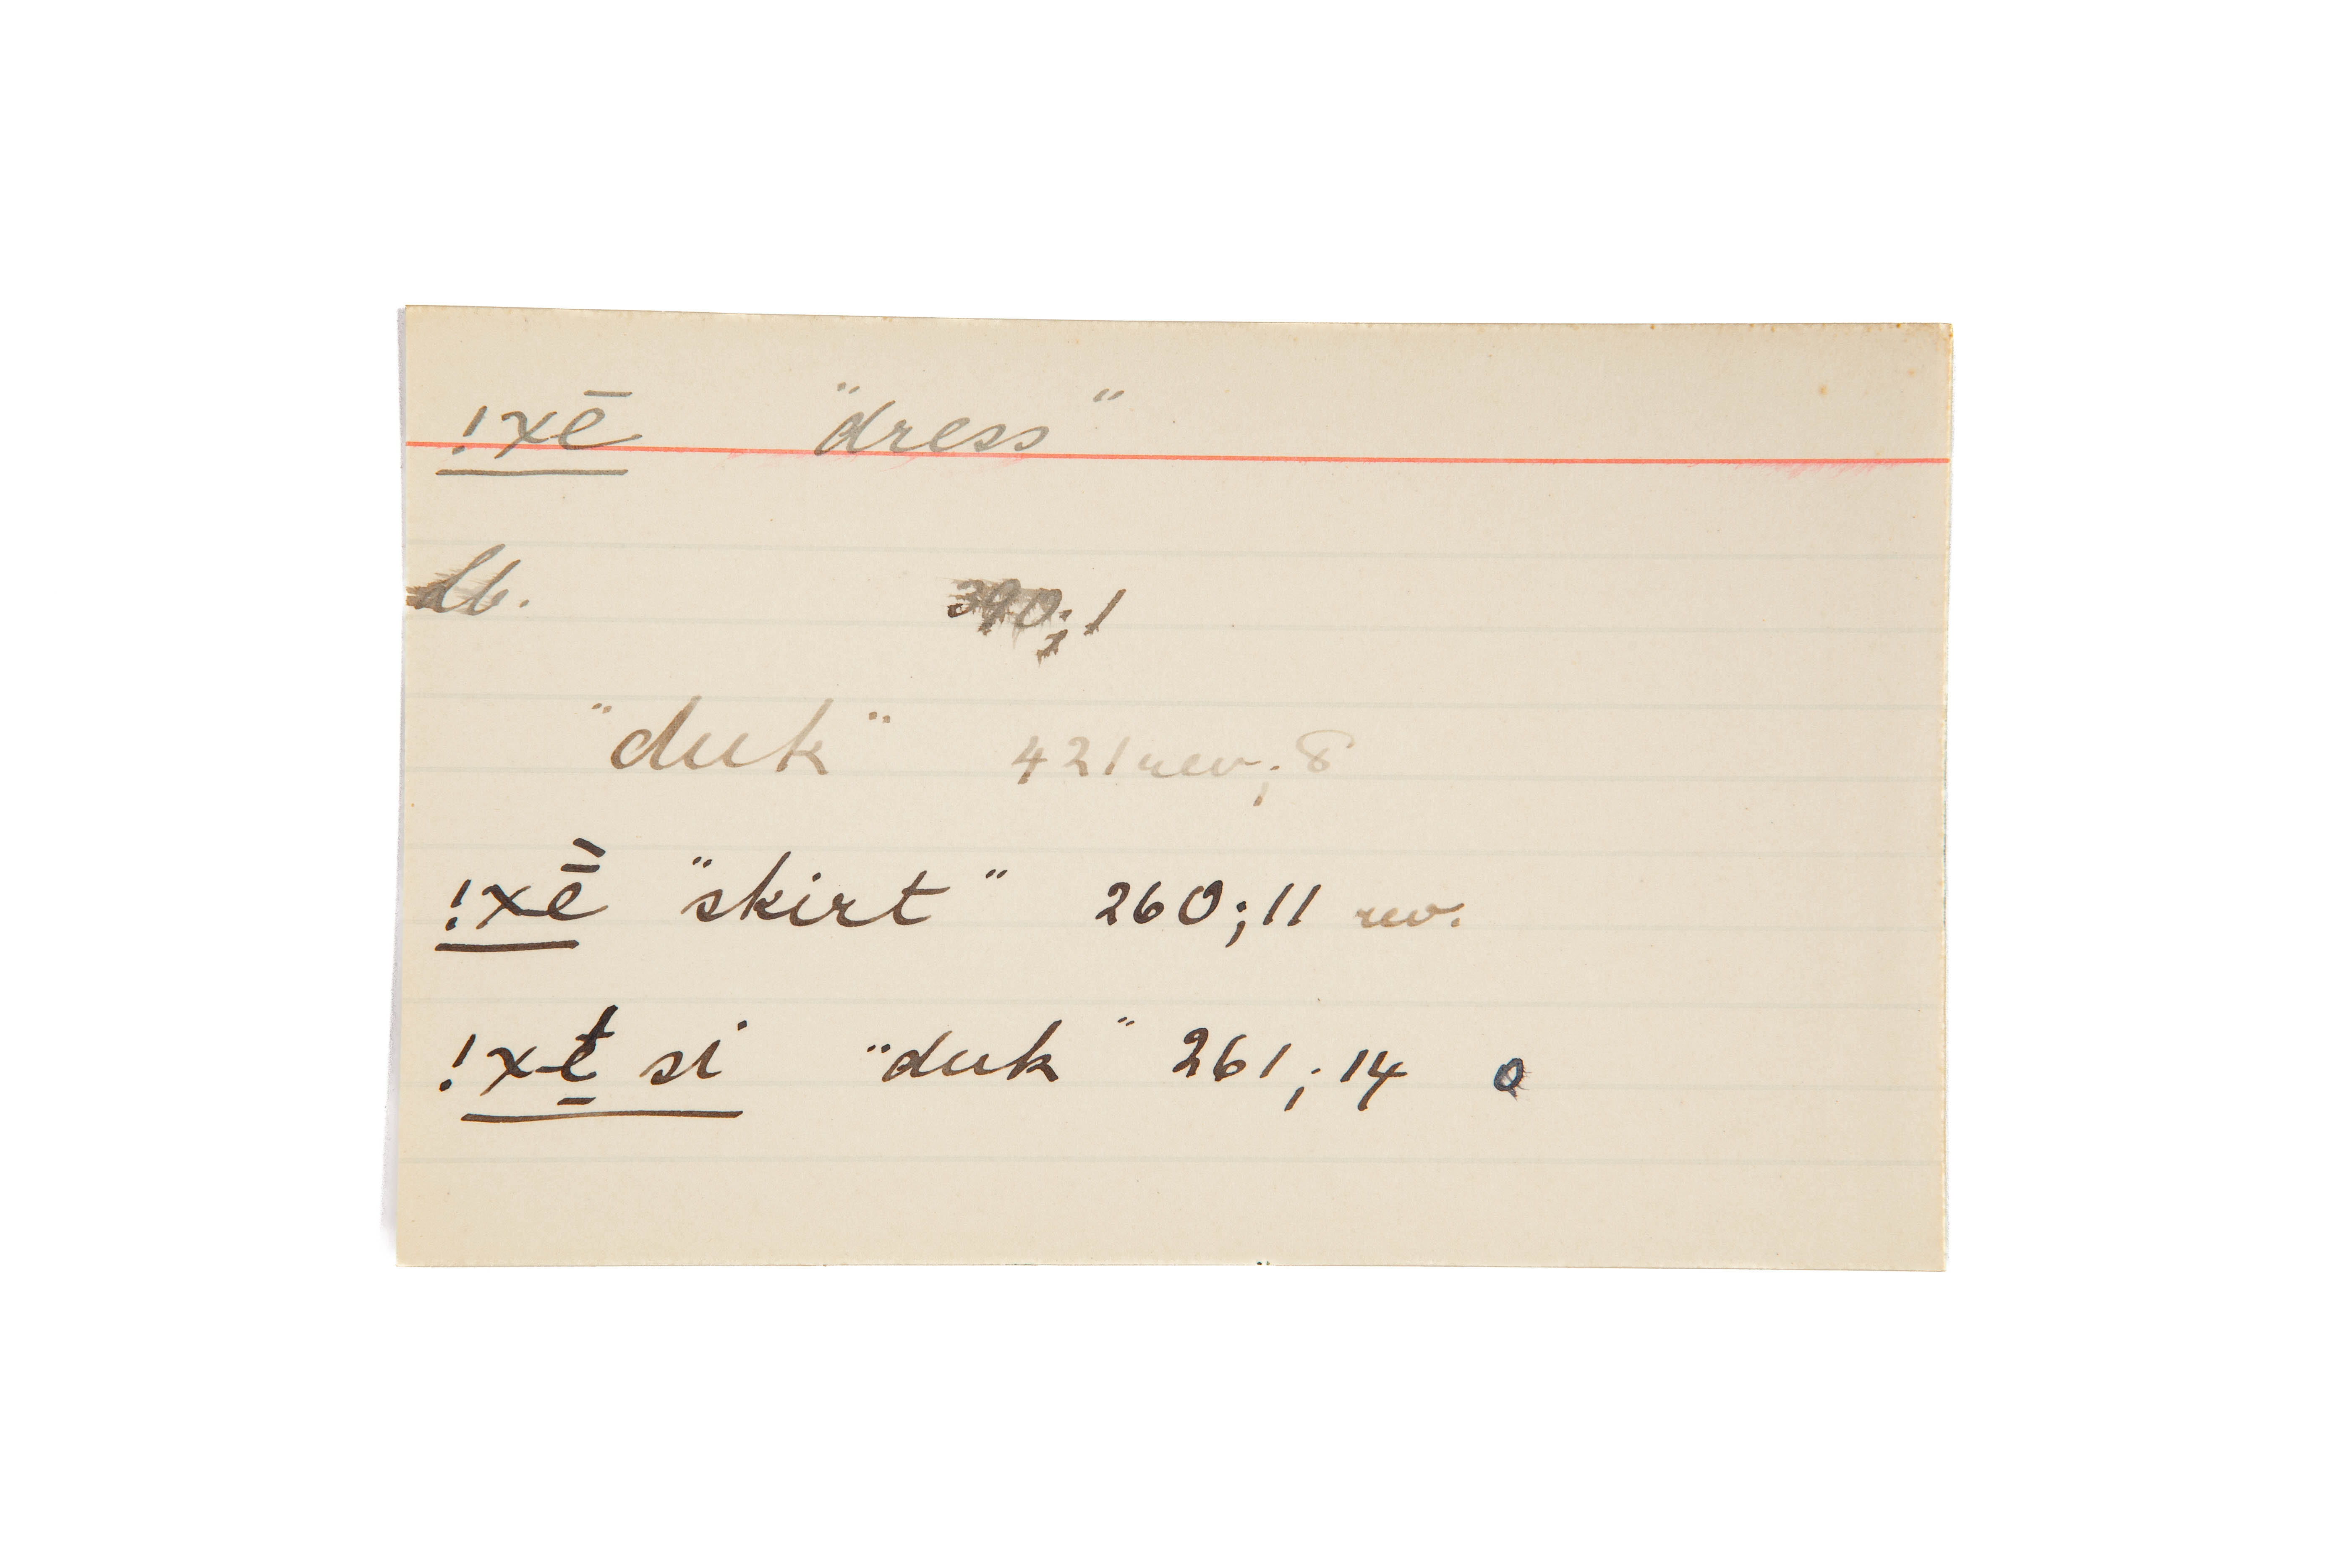 !xē "dress"
Lb. 390;1
"duk" 421 rev; 8
!xḕ "skirt" 260;11 rev.
si "duk" 261; 14 o